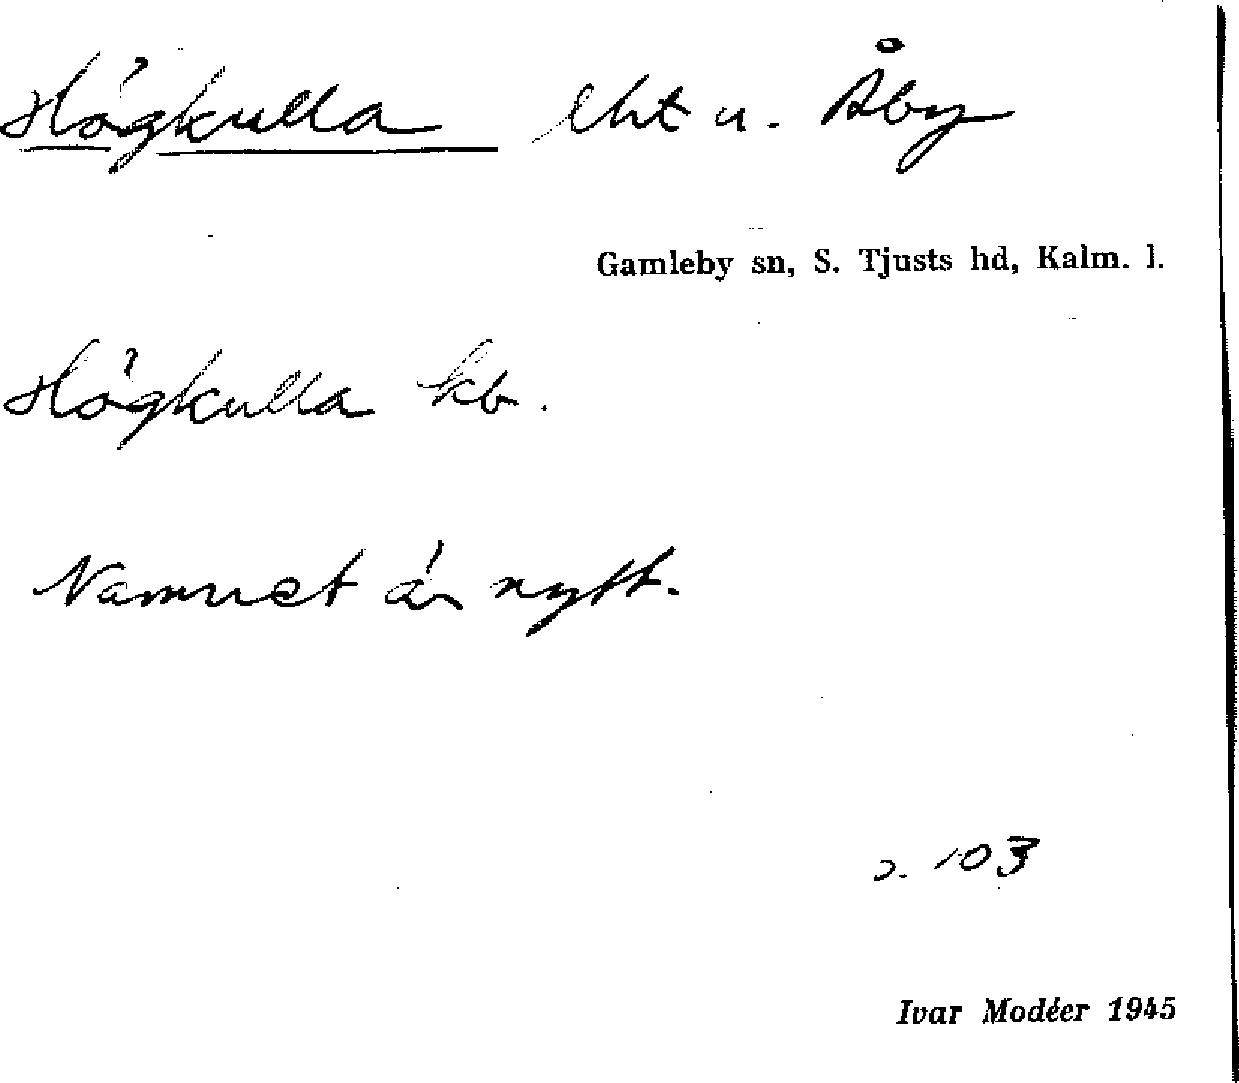 Högkulla lht u. Åby
Gamleby sn, S. Tjusts hd, Kalm. l.
Högkulla kb.
Namnet är nytt.
s. 103
Ivar Modéer 1945